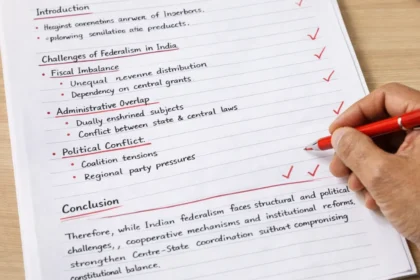 Introduction
• Heginst oarenotions anrwen of Insertions.
• -pilorwing sensilation ate products.
Challenges of Federalism in India.
• Fiscal Imbalance
• Unequal revenue distribution
• Dependency on central grants
• Administrative Overlap
• Dually enshrined subjects
• Conflict between state & central laws
• Political Conflict.
• Coalition tensions
• Regional party pressures
Conclusion
Therefore, while Indian federalism faces structural and political
challenges, , coopoerative mechanisms and institutional reforms,
strengthen Centre-State coordination suthout compromising
constitutional balance.